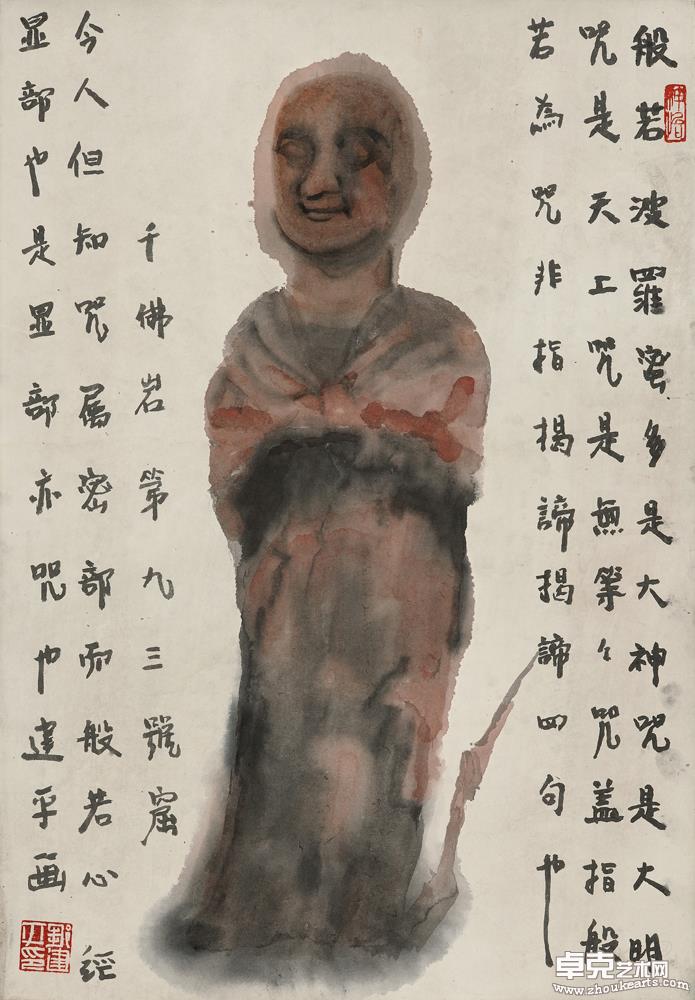 般若波羅蜜多是大神咒是大明
咒是天工咒是無等々咒蓋指般
若為咒非指揭諦揭諦四句也
千佛岩第九三號窟
今人但知咒屬密部而般若心經
显部也是显部亦咒也建平畫
卓克艺术网
www.zhoukearts.com